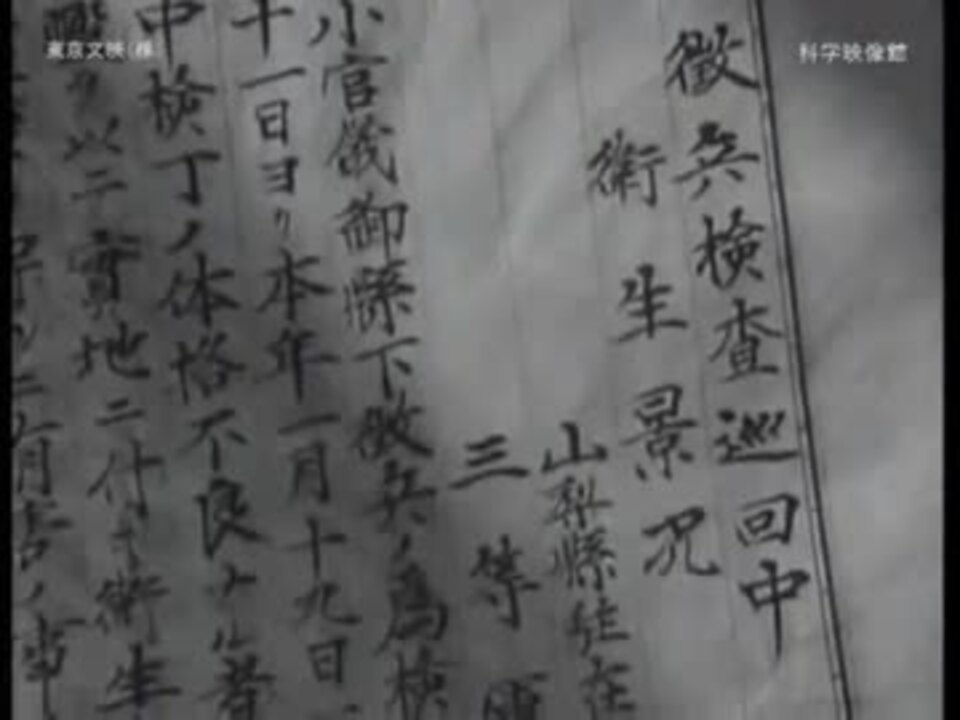 東京文映(株)
科学映像館
徴兵検査巡回中
衛生景況
山梨縣住在
三等
小官儀御縣下徴兵ノ爲検
十一日ヨリ本年一月十九日
中検丁ノ体格不良ナル者
ヲ以ニ實地ニ付キ衛生